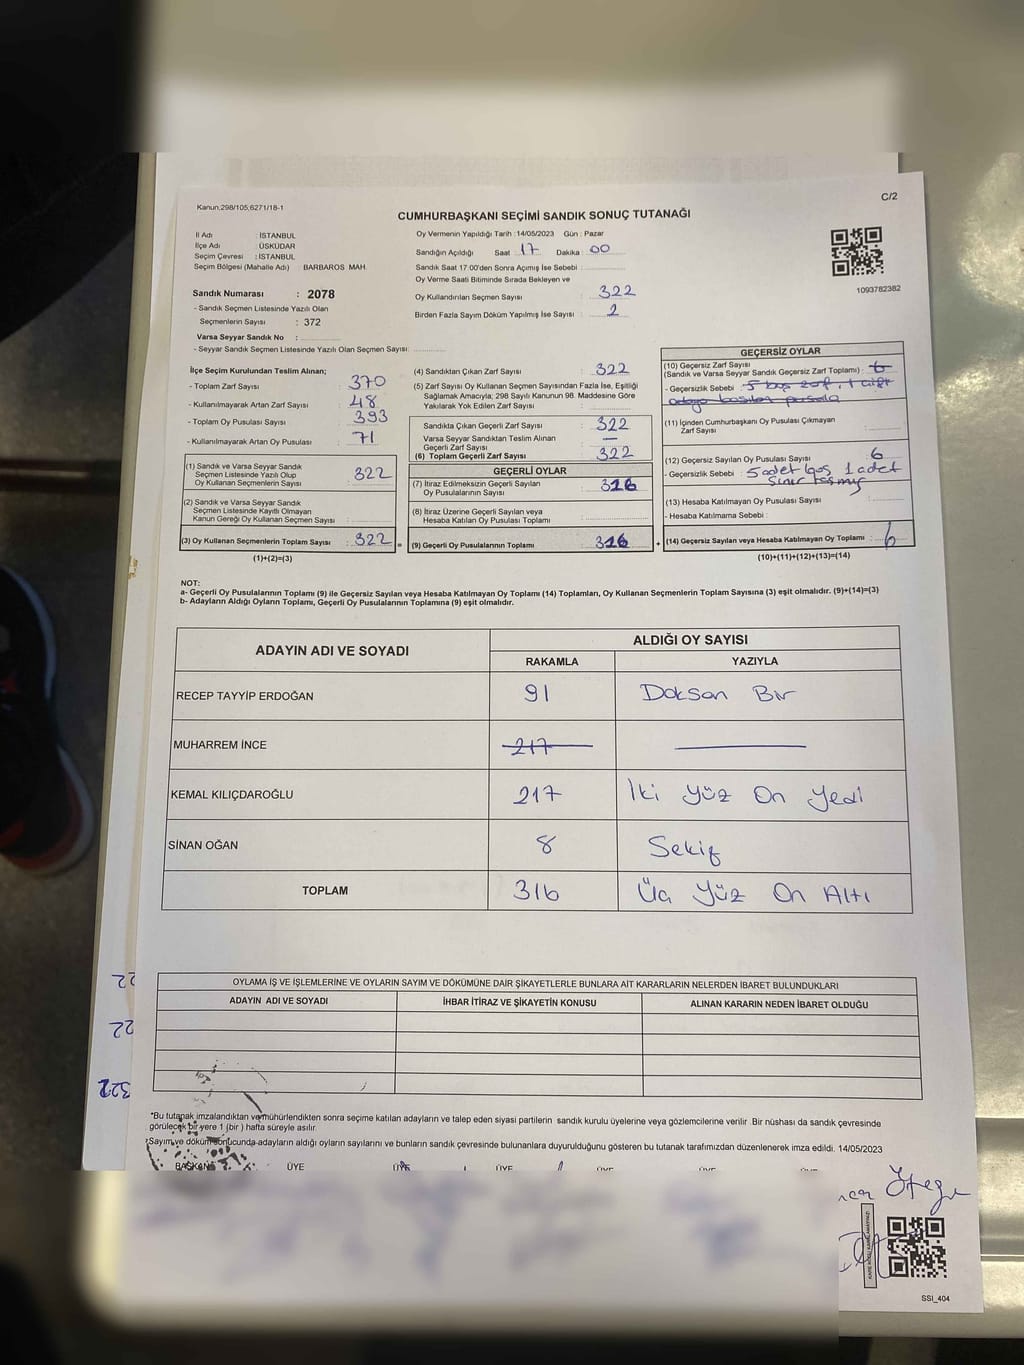 Kanun;298/105;6271/18-1
C/2
CUMHURBAŞKANI SEÇİMİ SANDIK SONUÇ TUTANAĞI
İl Adı : İSTANBUL
İlçe Adı : ÜSKÜDAR
Seçim Çevresi : İSTANBUL
Seçim Bölgesi (Mahalle Adı) : BARBAROS MAH.
Sandık Numarası : 2078
- Sandık Seçmen Listesinde Yazılı Olan
Seçmenlerin Sayısı : 372
Varsa Seyyar Sandık No :
- Seyyar Sandık Seçmen Listesinde Yazılı Olan Seçmen Sayısı:
Oy Vermenin Yapıldığı Tarih :14/05/2023 Gün : Pazar
Sandığın Açıldığı Saat 17 Dakika : 00
Sandık Saat 17:00'den Sonra Açımış İse Sebebi :
Oy Verme Saati Bitiminde Sırada Bekleyen ve
Oy Kullandırılan Seçmen Sayısı : 322
Birden Fazla Sayım Döküm Yapılmış İse Sayısı : 2
1093782382
İlçe Seçim Kurulundan Teslim Alınan;
- Toplam Zarf Sayısı : 370
- Kullanılmayarak Artan Zarf Sayısı : 48
- Toplam Oy Pusulası Sayısı : 393
- Kullanılmayarak Artan Oy Pusulası : 71
(1) Sandık ve Varsa Seyyar Sandık
Seçmen Listesinde Yazılı Olup
Oy Kullanan Seçmenlerin Sayısı : 322
(2) Sandık ve Varsa Seyyar Sandık
Seçmen Listesinde Kayıtlı Olmayan
Kanun Gereği Oy Kullanan Seçmen Sayısı :
(3) Oy Kullanan Seçmenlerin Toplam Sayısı : 322 =
(1)+(2)=(3)
(4) Sandıktan Çıkan Zarf Sayısı : 322
(5) Zarf Sayısı Oy Kullanan Seçmen Sayısından Fazla İse, Eşitliği
Sağlamak Amacıyla; 298 Sayılı Kanunun 98. Maddesine Göre
Yakılarak Yok Edilen Zarf Sayısı :
Sandıkta Çıkan Geçerli Zarf Sayısı : 322
Varsa Seyyar Sandıktan Teslim Alınan
Geçerli Zarf Sayısı : —
(6) Toplam Geçerli Zarf Sayısı : 322
GEÇERLİ OYLAR
(7) İtiraz Edilmeksizin Geçerli Sayılan
Oy Pusulalarının Sayısı : 316
(8) İtiraz Üzerine Geçerli Sayılan veya
Hesaba Katılan Oy Pusulası Toplamı :
(9) Geçerli Oy Pusulalarının Toplamı : 316 +
GEÇERSİZ OYLAR
(10) Geçersiz Zarf Sayısı
(Sandık ve Varsa Seyyar Sandık Geçersiz Zarf Toplamı) : 6
- Geçersizlik Sebebi : 5 boş zarf, 1 çift
adaya basılan pusula
(11) İçinden Cumhurbaşkanı Oy Pusulası Çıkmayan
Zarf Sayısı :
(12) Geçersiz Sayılan Oy Pusulası Sayısı : 6
- Geçersizlik Sebebi : 5 adet boş 1 adet
sınır taşmış
(13) Hesaba Katılmayan Oy Pusulası Sayısı :
- Hesaba Katılmama Sebebi :
(14) Geçersiz Sayılan veya Hesaba Katılmayan Oy Toplamı : 6
(10)+(11)+(12)+(13)=(14)
NOT:
a- Geçerli Oy Pusulalarının Toplamı (9) ile Geçersiz Sayılan veya Hesaba Katılmayan Oy Toplamı (14) Toplamları, Oy Kullanan Seçmenlerin Toplam Sayısına (3) eşit olmalıdır. (9)+(14)=(3)
b- Adayların Aldığı Oyların Toplamı, Geçerli Oy Pusulalarının Toplamına (9) eşit olmalıdır.
ADAYIN ADI VE SOYADI ALDIĞI OY SAYISI
RAKAMLA YAZIYLA
RECEP TAYYİP ERDOĞAN 91 Doksan Bir
MUHARREM İNCE 217
KEMAL KILIÇDAROĞLU 217 İki Yüz On Yedi
SİNAN OĞAN 8 Sekiz
TOPLAM 316 Üç Yüz On Altı
OYLAMA İŞ VE İŞLEMLERİNE VE OYLARIN SAYIM VE DÖKÜMÜNE DAİR ŞİKAYETLERLE BUNLARA AİT KARARLARIN NELERDEN İBARET BULUNDUKLARI
ADAYIN ADI VE SOYADI İHBAR İTİRAZ VE ŞİKAYETİN KONUSU ALINAN KARARIN NEDEN İBARET OLDUĞU
22
22
322
*Bu tutanak imzalandıktan ve mühürlendikten sonra seçime katılan adayların ve talep eden siyasi partilerin sandık kurulu üyelerine veya gözlemcilerine verilir. Bir nüshası da sandık çevresinde
görülecek bir yere 1 (bir ) hafta süreyle asılır.
*Sayım ve döküm sonucunda adayların aldığı oyların sayılarını ve bunların sandık çevresinde bulunanlara duyurulduğunu gösteren bu tutanak tarafımızdan düzenlenerek imza edildi. 14/05/2023
BAŞKAN ÜYE ÜYE ÜYE ÜYE ÜYE ÜYE
SSI_404